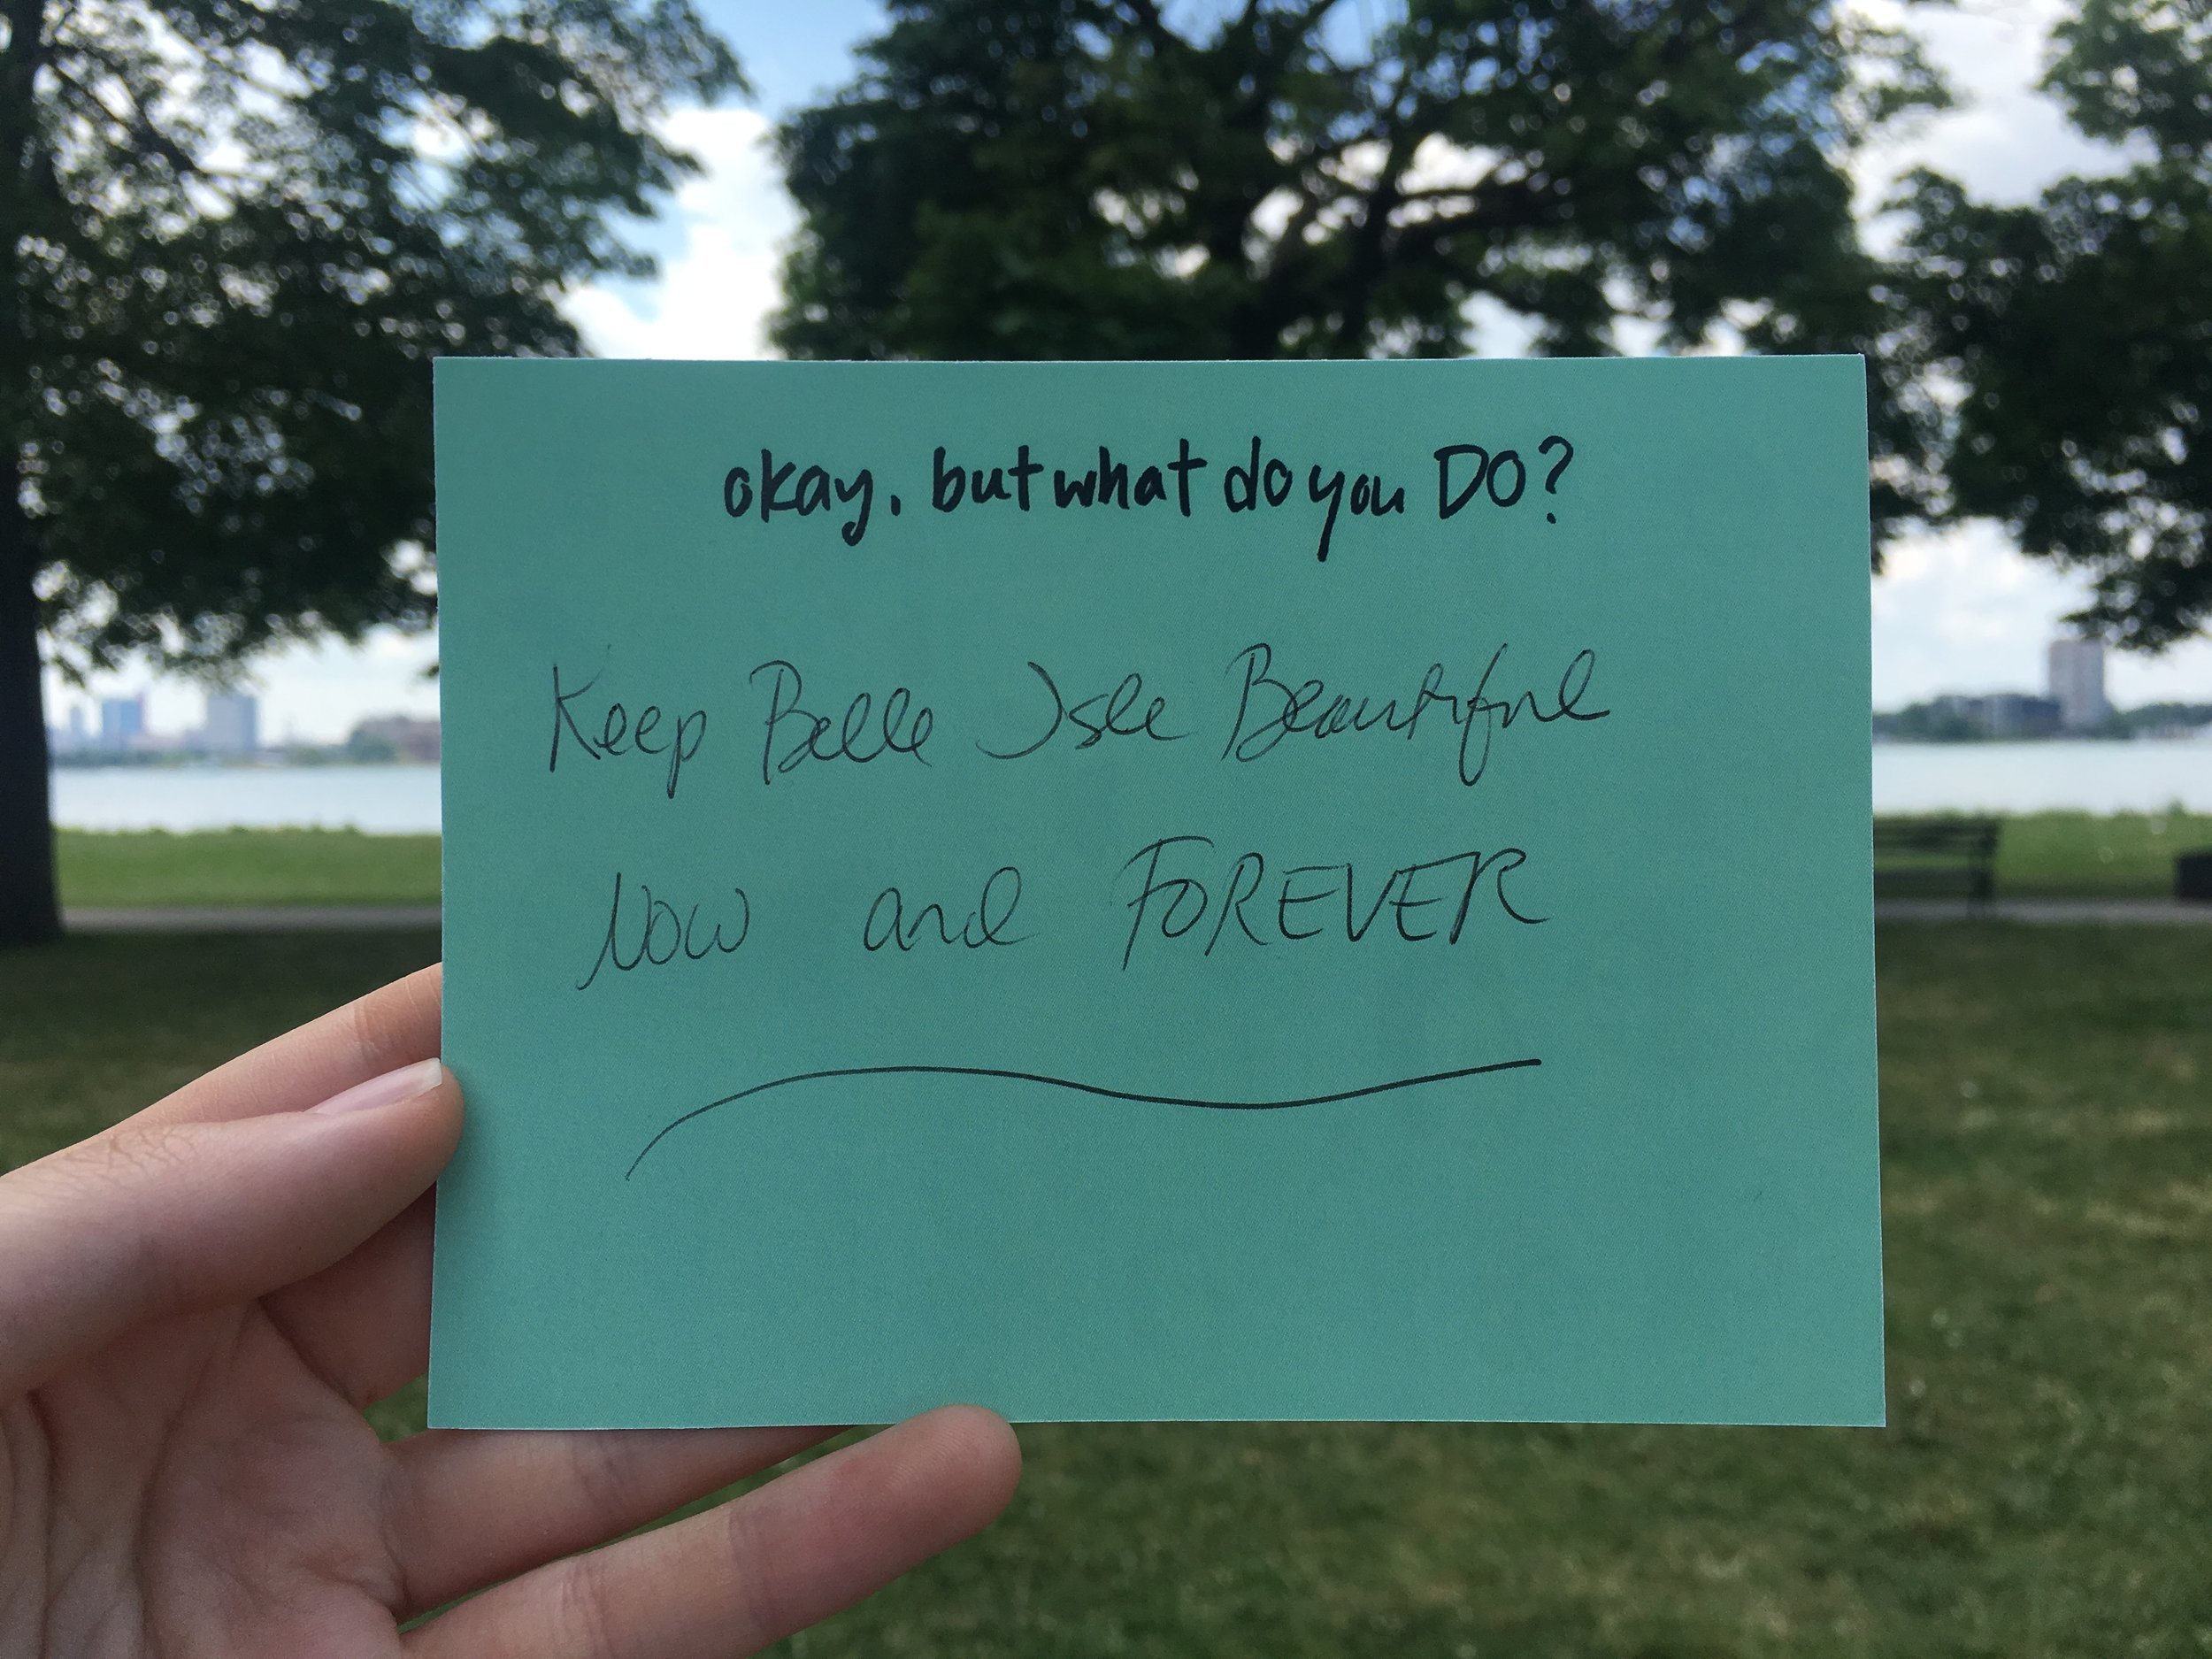 okay, but what do you DO?
Keep Belle Isle Beautiful
Now and FOREVER